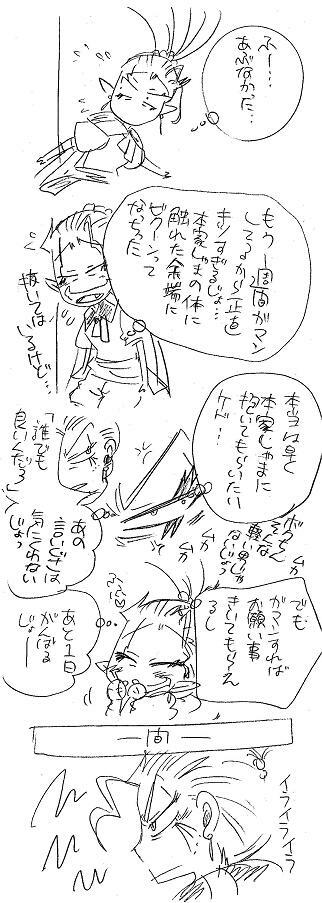 ふー…
あぶなかった…
もう一週間ガマン
してるから正直
キツすぎるじょ…
本家じゃまの体に
触れた途端に
ビクーンって
なっちった
抜いては
いるけど…
本当は早く
本家じゃまに
抱いてもらいたい
ケド…
ボクちん
そんな
軽い男じゃ
ないじょっ
ムカ
ムカ
「誰でも
良いんだろ」
あの
言い草は
気にくわない
じょっ
でも
ガマンすれば
お願い事
きいてもらえ
るし
あと1日
がんばる
じょー
一間一
イライライラ